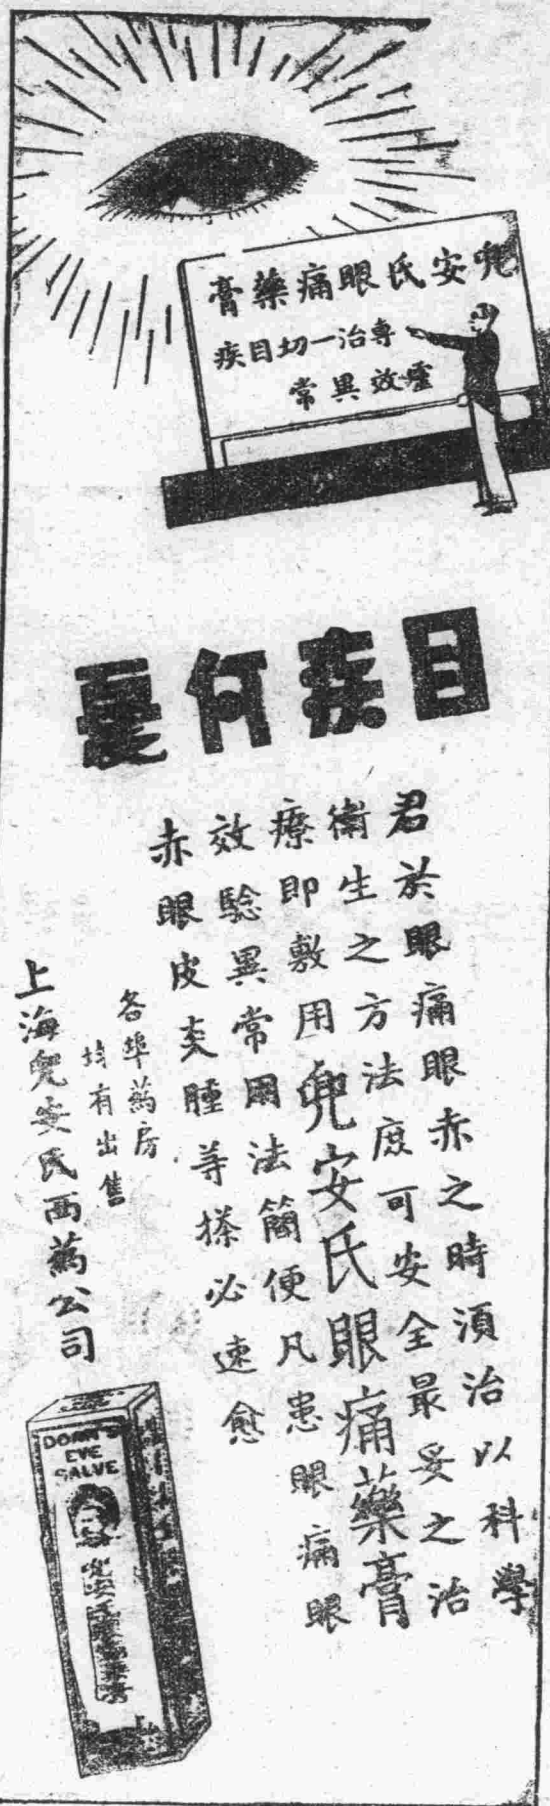 兜安氏眼痛藥膏
專治一切目疾
靈效異常
目疾何憂
君於眼痛眼赤之時須治以科學
衛生之方法庶可安全最妥之治
療即敷用兜安氏眼痛藥膏
效驗異常用法簡便凡患眼痛眼
赤眼皮炎腫等搽必速愈
各埠藥房
均有出售
上海兜安氏西藥公司
DOAN'S
EYE
SALVE